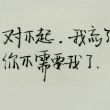 对不起，我忘了
你不需要我了．